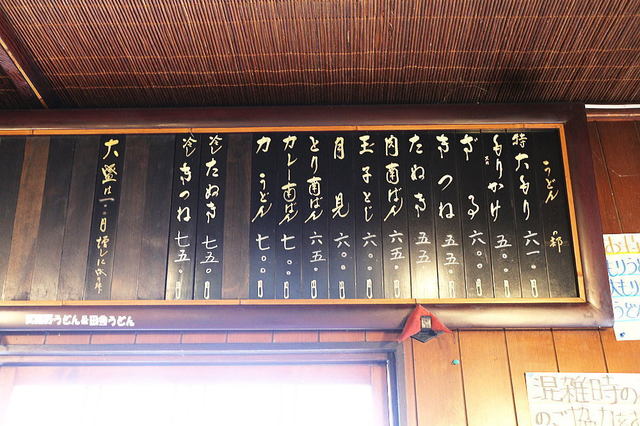 うどん 部
特大もり 六一〇円
もりかけ 五〇〇円
ざる 六〇〇円
きつね 五五〇円
たぬき 五五〇円
肉南ばん 六五〇円
玉子とじ 六〇〇円
月見 六〇〇円
とり南ばん 六五〇円
カレー南ばん 七〇〇円
力うどん 七〇〇円
冷したぬき 七五〇円
冷しきつね 七五〇円
大盛は一〇〇円増しに成ります
うどん&田舎うどん
もりう
大もり
うど
混雑時の
のご協力を